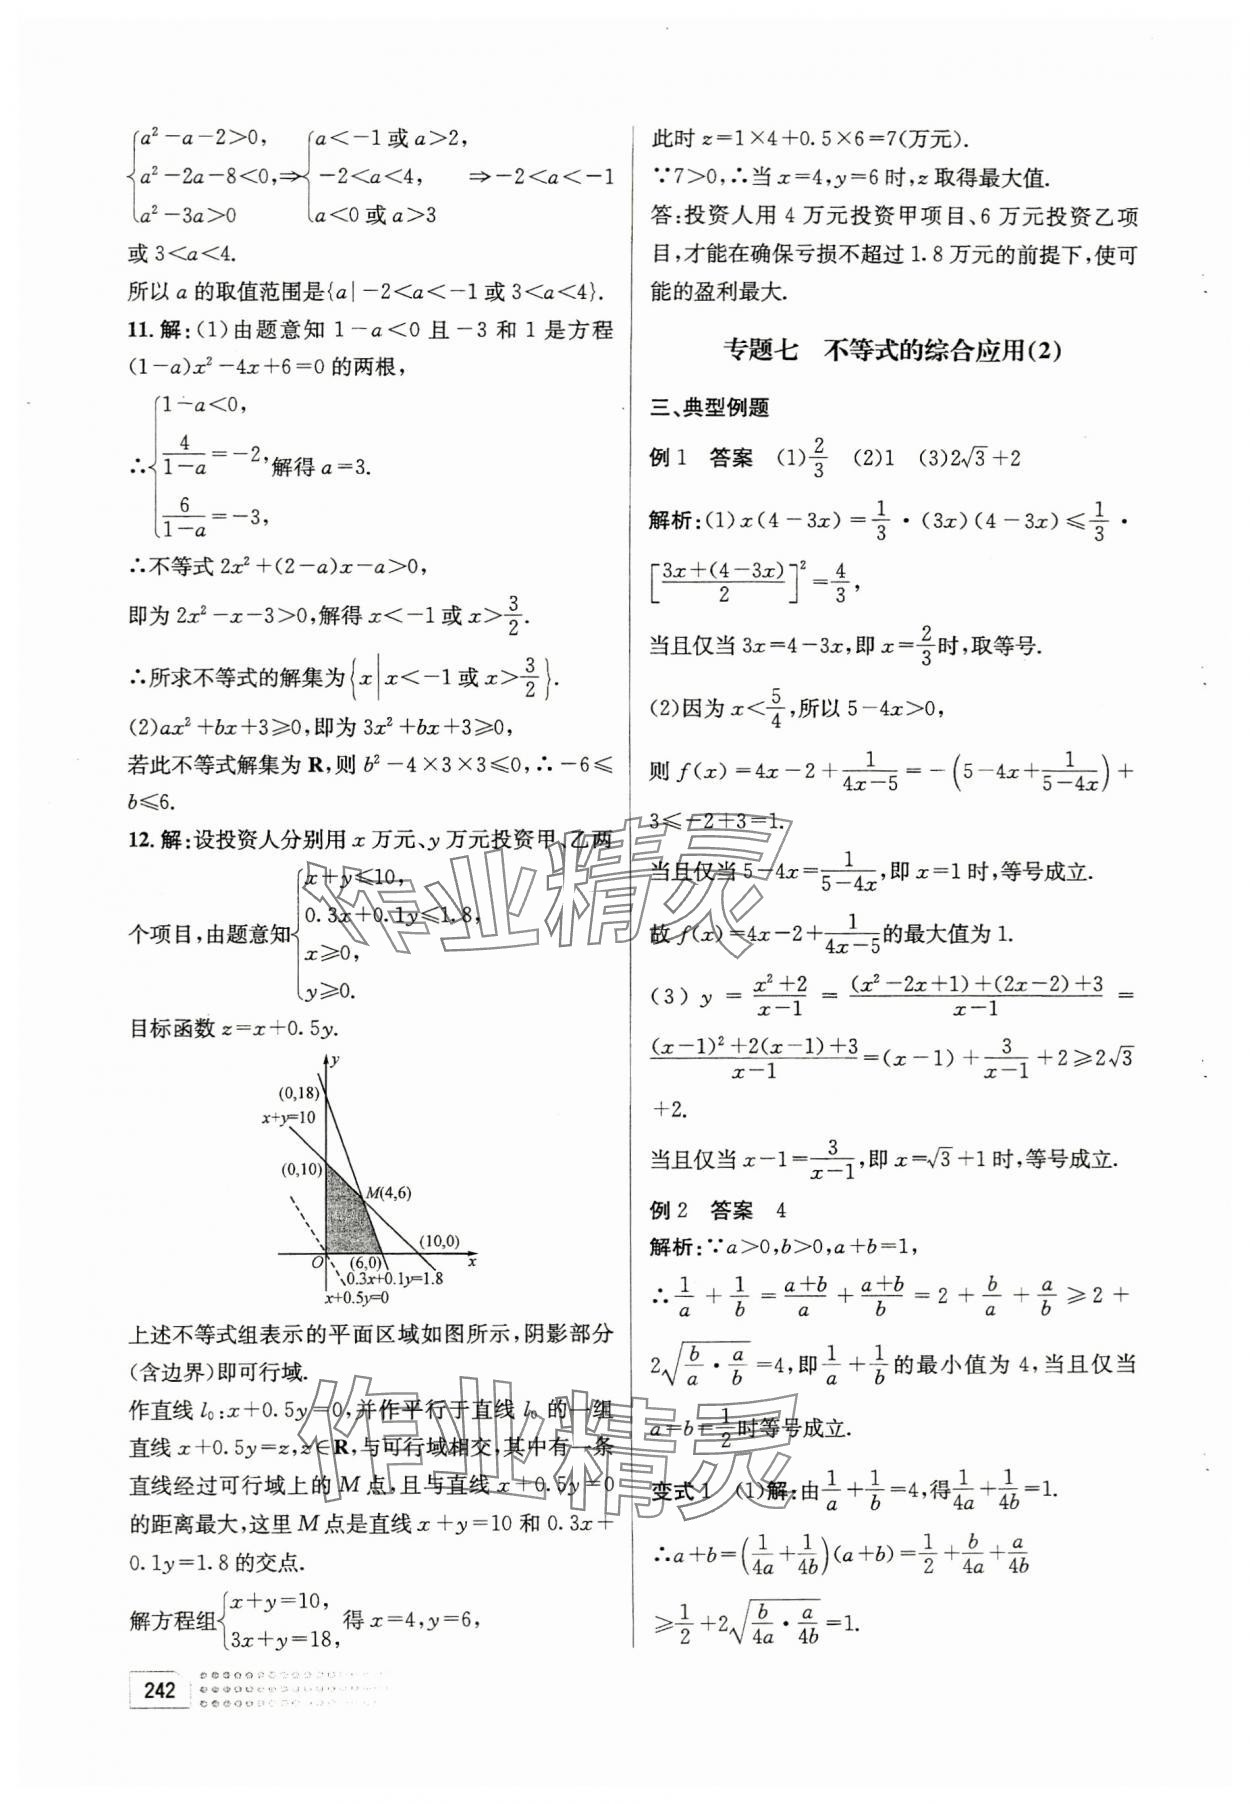 {a²-a-2>0, a²-2a-8<0, a²-3a>0 ⇒ {a<-1或a>2, -2<a<4, a<0或a>3 ⇒-2<a<-1
或3<a<4.
所以a的取值范围是{a|-2<a<-1或3<a<4}.
11.解:(1)由题意知1-a<0且-3和1是方程
(1-a)x²-4x+6=0的两根,
∴{1-a<0, 4/(1-a)=-2, 6/(1-a)=-3, 解得a=3.
∴不等式2x²+(2-a)x-a>0,
即为2x²-x-3>0,解得x<-1或x>3/2.
∴所求不等式的解集为{x|x<-1或x>3/2}.
(2)ax²+bx+3≥0,即为3x²+bx+3≥0,
若此不等式解集为R,则b²-4×3×3≤0,∴-6≤
b≤6.
12.解:设投资人分别用x万元、y万元投资甲、乙两
个项目,由题意知{x+y≤10, 0.3x+0.1y≤1.8, x≥0, y≥0.
目标函数z=x+0.5y.
y
(0,18)
x+y=10
(0,10)
M(4,6)
(10,0)
O
(6,0)
x
0.3x+0.1y=1.8
x+0.5y=0
上述不等式组表示的平面区域如图所示,阴影部分
(含边界)即可行域.
作直线l₀:x+0.5y=0,并作平行于直线l₀的一组
直线x+0.5y=z,z∈R,与可行域相交,其中有一条
直线经过可行域上的M点,且与直线x+0.5y=0
的距离最大,这里M点是直线x+y=10和0.3x+
0.1y=1.8的交点.
解方程组{x+y=10, 3x+y=18, 得x=4,y=6,
242
此时z=1×4+0.5×6=7(万元).
∵7>0,∴当x=4,y=6时,z取得最大值.
答:投资人用4万元投资甲项目、6万元投资乙项
目,才能在确保亏损不超过1.8万元的前提下,使可
能的盈利最大.
专题七 不等式的综合应用(2)
三、典型例题
例1 答案 (1)2/3 (2)1 (3)2√3+2
解析:(1)x(4-3x)=1/3·(3x)(4-3x)≤1/3·
[(3x+(4-3x))/2]²=4/3,
当且仅当3x=4-3x,即x=2/3时,取等号.
(2)因为x<5/4,所以5-4x>0,
则f(x)=4x-2+1/(4x-5)=-(5-4x+1/(5-4x))+
3≤-2+3=1.
当且仅当5-4x=1/(5-4x),即x=1时,等号成立.
故f(x)=4x-2+1/(4x-5)的最大值为1.
(3)y=(x²+2)/(x-1)=((x²-2x+1)+(2x-2)+3)/(x-1)=
((x-1)²+2(x-1)+3)/(x-1)=(x-1)+3/(x-1)+2≥2√3
+2.
当且仅当x-1=3/(x-1),即x=√3+1时,等号成立.
例2 答案 4
解析:∵a>0,b>0,a+b=1,
∴1/a+1/b=(a+b)/a+(a+b)/b=2+b/a+a/b≥2+
2√(b/a·a/b)=4,即1/a+1/b的最小值为4,当且仅当
a=b=1/2时等号成立.
变式1 (1)解:由1/a+1/b=4,得1/4a+1/4b=1.
∴a+b=(1/4a+1/4b)(a+b)=1/2+b/4a+a/4b
≥1/2+2√(b/4a·a/4b)=1.
作业精灵
作业精灵